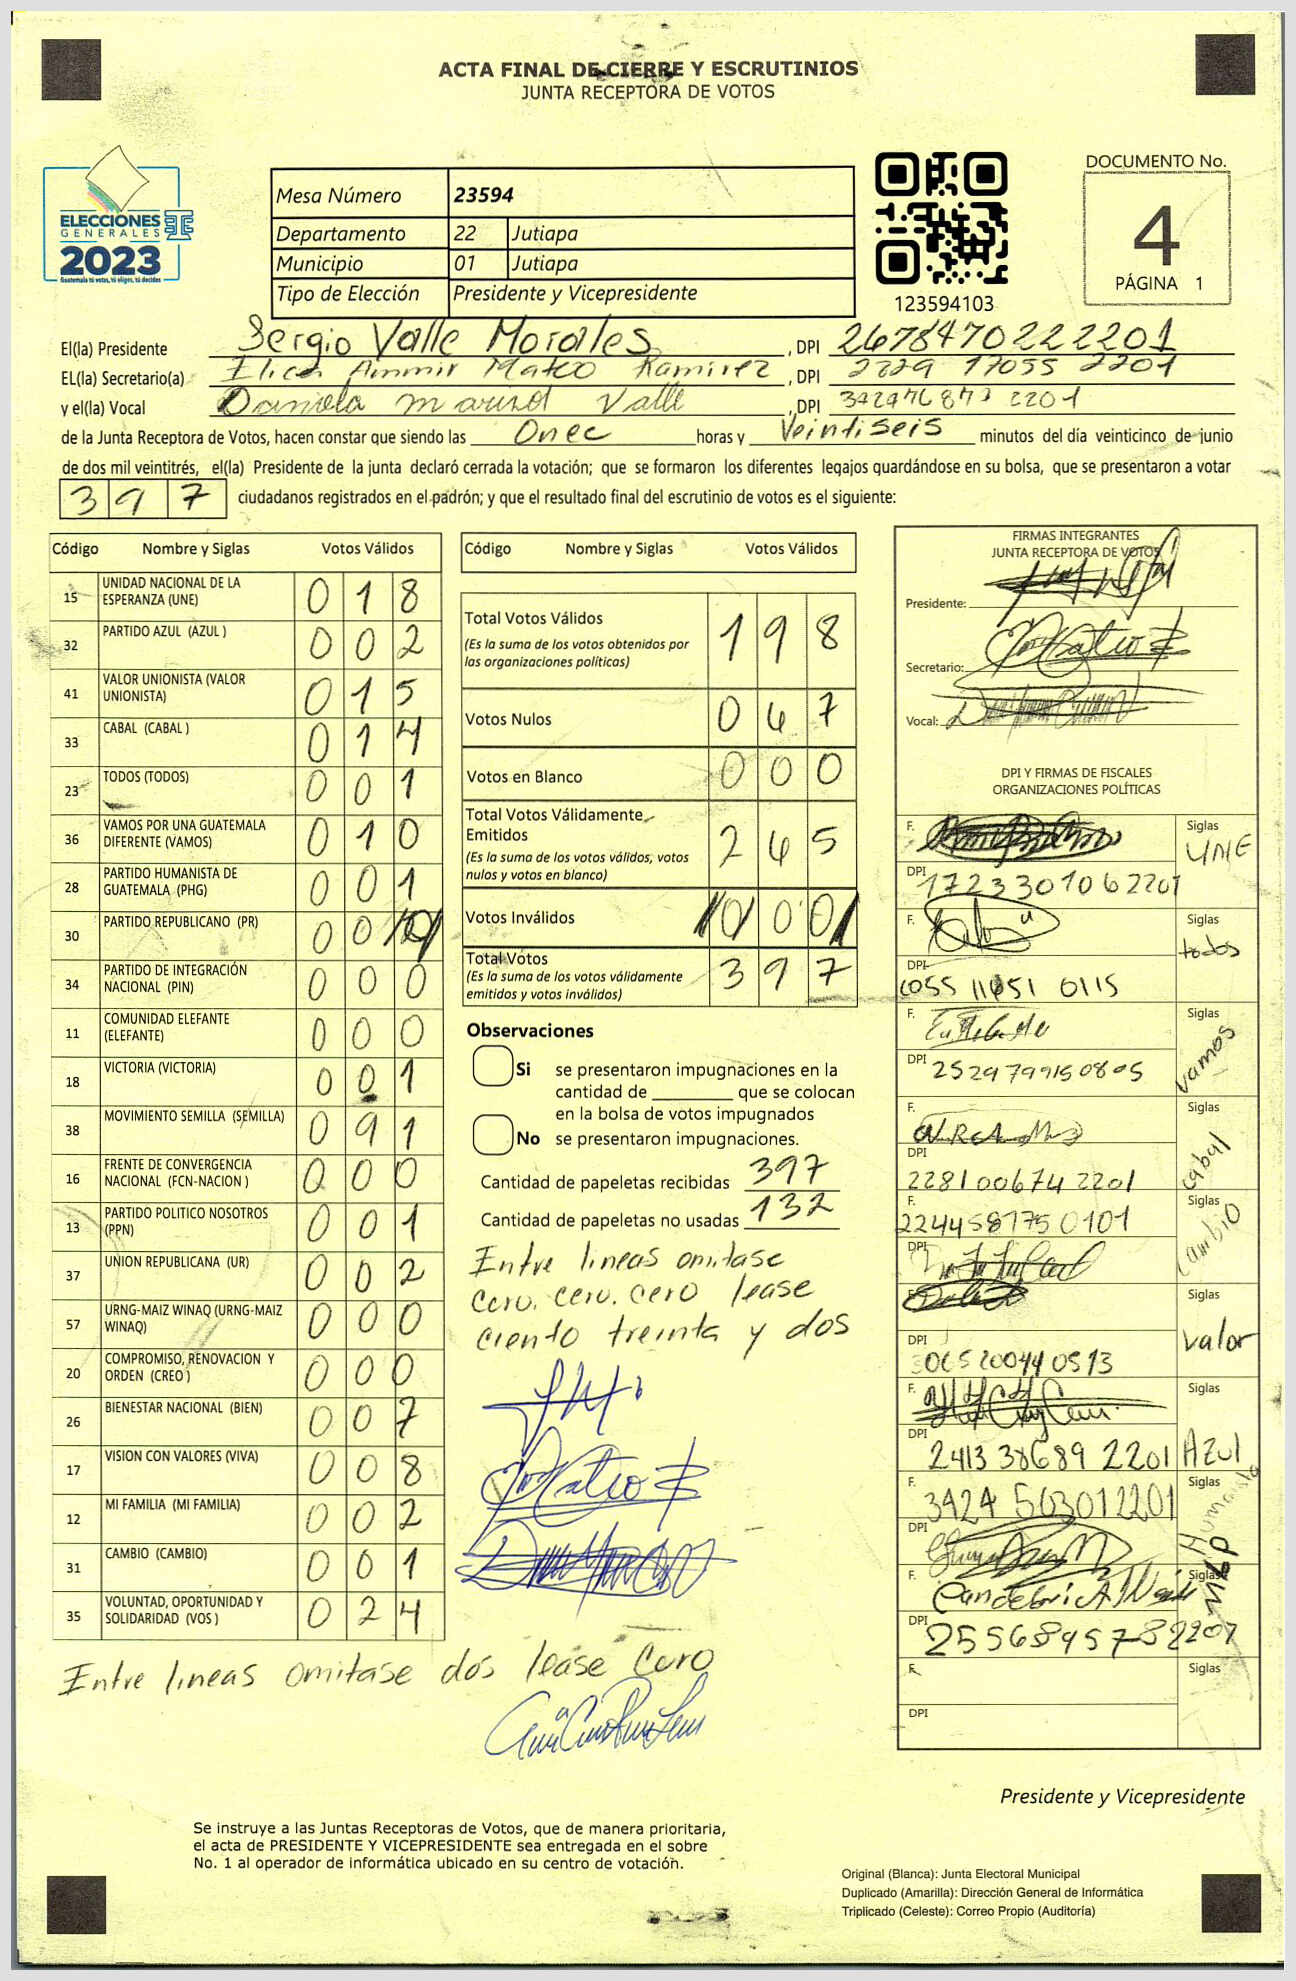 ACTA FINAL DE CIERRE Y ESCRUTINIOS
JUNTA RECEPTORA DE VOTOS
ELECCIONES
GENERALES
2023
Guatemala tú votas, tú eliges, tú decides
Mesa Número 23594
Departamento 22 Jutiapa
Municipio 01 Jutiapa
Tipo de Elección Presidente y Vicepresidente
123594103
DOCUMENTO No.
4
PÁGINA 1
El(la) Presidente Sergio Valle Morales, DPI 2678470222201
EL(la) Secretario(a) Mateo Ramirez, DPI 2229 17055 2201
y el(la) Vocal Daniela Valle, DPI 2201
de la Junta Receptora de Votos, hacen constar que siendo las Onec horas y Veintiseis minutos del día veinticinco de junio
de dos mil veintitrés, el(la) Presidente de la junta declaró cerrada la votación; que se formaron los diferentes legajos guardándose en su bolsa, que se presentaron a votar
397 ciudadanos registrados en el padrón; y que el resultado final del escrutinio de votos es el siguiente:
Código Nombre y Siglas Votos Válidos
15 UNIDAD NACIONAL DE LA ESPERANZA (UNE) 018
32 PARTIDO AZUL (AZUL ) 002
41 VALOR UNIONISTA (VALOR UNIONISTA) 015
33 CABAL (CABAL ) 014
23 TODOS (TODOS) 001
36 VAMOS POR UNA GUATEMALA DIFERENTE (VAMOS) 010
28 PARTIDO HUMANISTA DE GUATEMALA (PHG) 001
30 PARTIDO REPUBLICANO (PR) 00
34 PARTIDO DE INTEGRACIÓN NACIONAL (PIN) 000
11 COMUNIDAD ELEFANTE (ELEFANTE) 000
18 VICTORIA (VICTORIA) 001
38 MOVIMIENTO SEMILLA (SEMILLA) 091
16 FRENTE DE CONVERGENCIA NACIONAL (FCN-NACION ) 000
13 PARTIDO POLITICO NOSOTROS (PPN) 001
37 UNION REPUBLICANA (UR) 002
57 URNG-MAIZ WINAQ (URNG-MAIZ WINAQ) 000
20 COMPROMISO, RENOVACION Y ORDEN (CREO ) 000
26 BIENESTAR NACIONAL (BIEN) 007
17 VISION CON VALORES (VIVA) 008
12 MI FAMILIA (MI FAMILIA) 002
31 CAMBIO (CAMBIO) 001
35 VOLUNTAD, OPORTUNIDAD Y SOLIDARIDAD (VOS ) 024
Entre lineas omitase dos lease Cero
Código Nombre y Siglas Votos Válidos
Total Votos Válidos 198
(Es la suma de los votos obtenidos por
las organizaciones políticas)
Votos Nulos 047
Votos en Blanco 000
Total Votos Válidamente Emitidos 245
(Es la suma de los votos válidos, votos
nulos y votos en blanco)
Votos Inválidos
Total Votos 397
(Es la suma de los votos válidamente
emitidos y votos inválidos)
Observaciones
Si se presentaron impugnaciones en la
cantidad de ________ que se colocan
en la bolsa de votos impugnados
No se presentaron impugnaciones.
Cantidad de papeletas recibidas 397
Cantidad de papeletas no usadas 132
Entre lineas omitase
cero. cero. cero lease
ciento treinta y dos
FIRMAS INTEGRANTES
JUNTA RECEPTORA DE VOTOS
Presidente:
Secretario:
Vocal:
DPI Y FIRMAS DE FISCALES
ORGANIZACIONES POLÍTICAS
F. Siglas UNE
DPI 1723301062201
F. Siglas todos
DPI 0115
F. Siglas Vamos
DPI 2529799150805
F. Siglas Cabal
DPI 2281006742201
F. 2244581750101 Siglas Cambio
DPI
F. Siglas Valor
DPI 0513
F. Siglas Azul
DPI 2413 38689 2201
F. 3424 563012201 Siglas Humanista
DPI
F. Siglas
DPI 2556895782201
F. Siglas
DPI
Presidente y Vicepresidente
Se instruye a las Juntas Receptoras de Votos, que de manera prioritaria,
el acta de PRESIDENTE Y VICEPRESIDENTE sea entregada en el sobre
No. 1 al operador de informática ubicado en su centro de votación.
Original (Blanca): Junta Electoral Municipal
Duplicado (Amarilla): Dirección General de Informática
Triplicado (Celeste): Correo Propio (Auditoría)